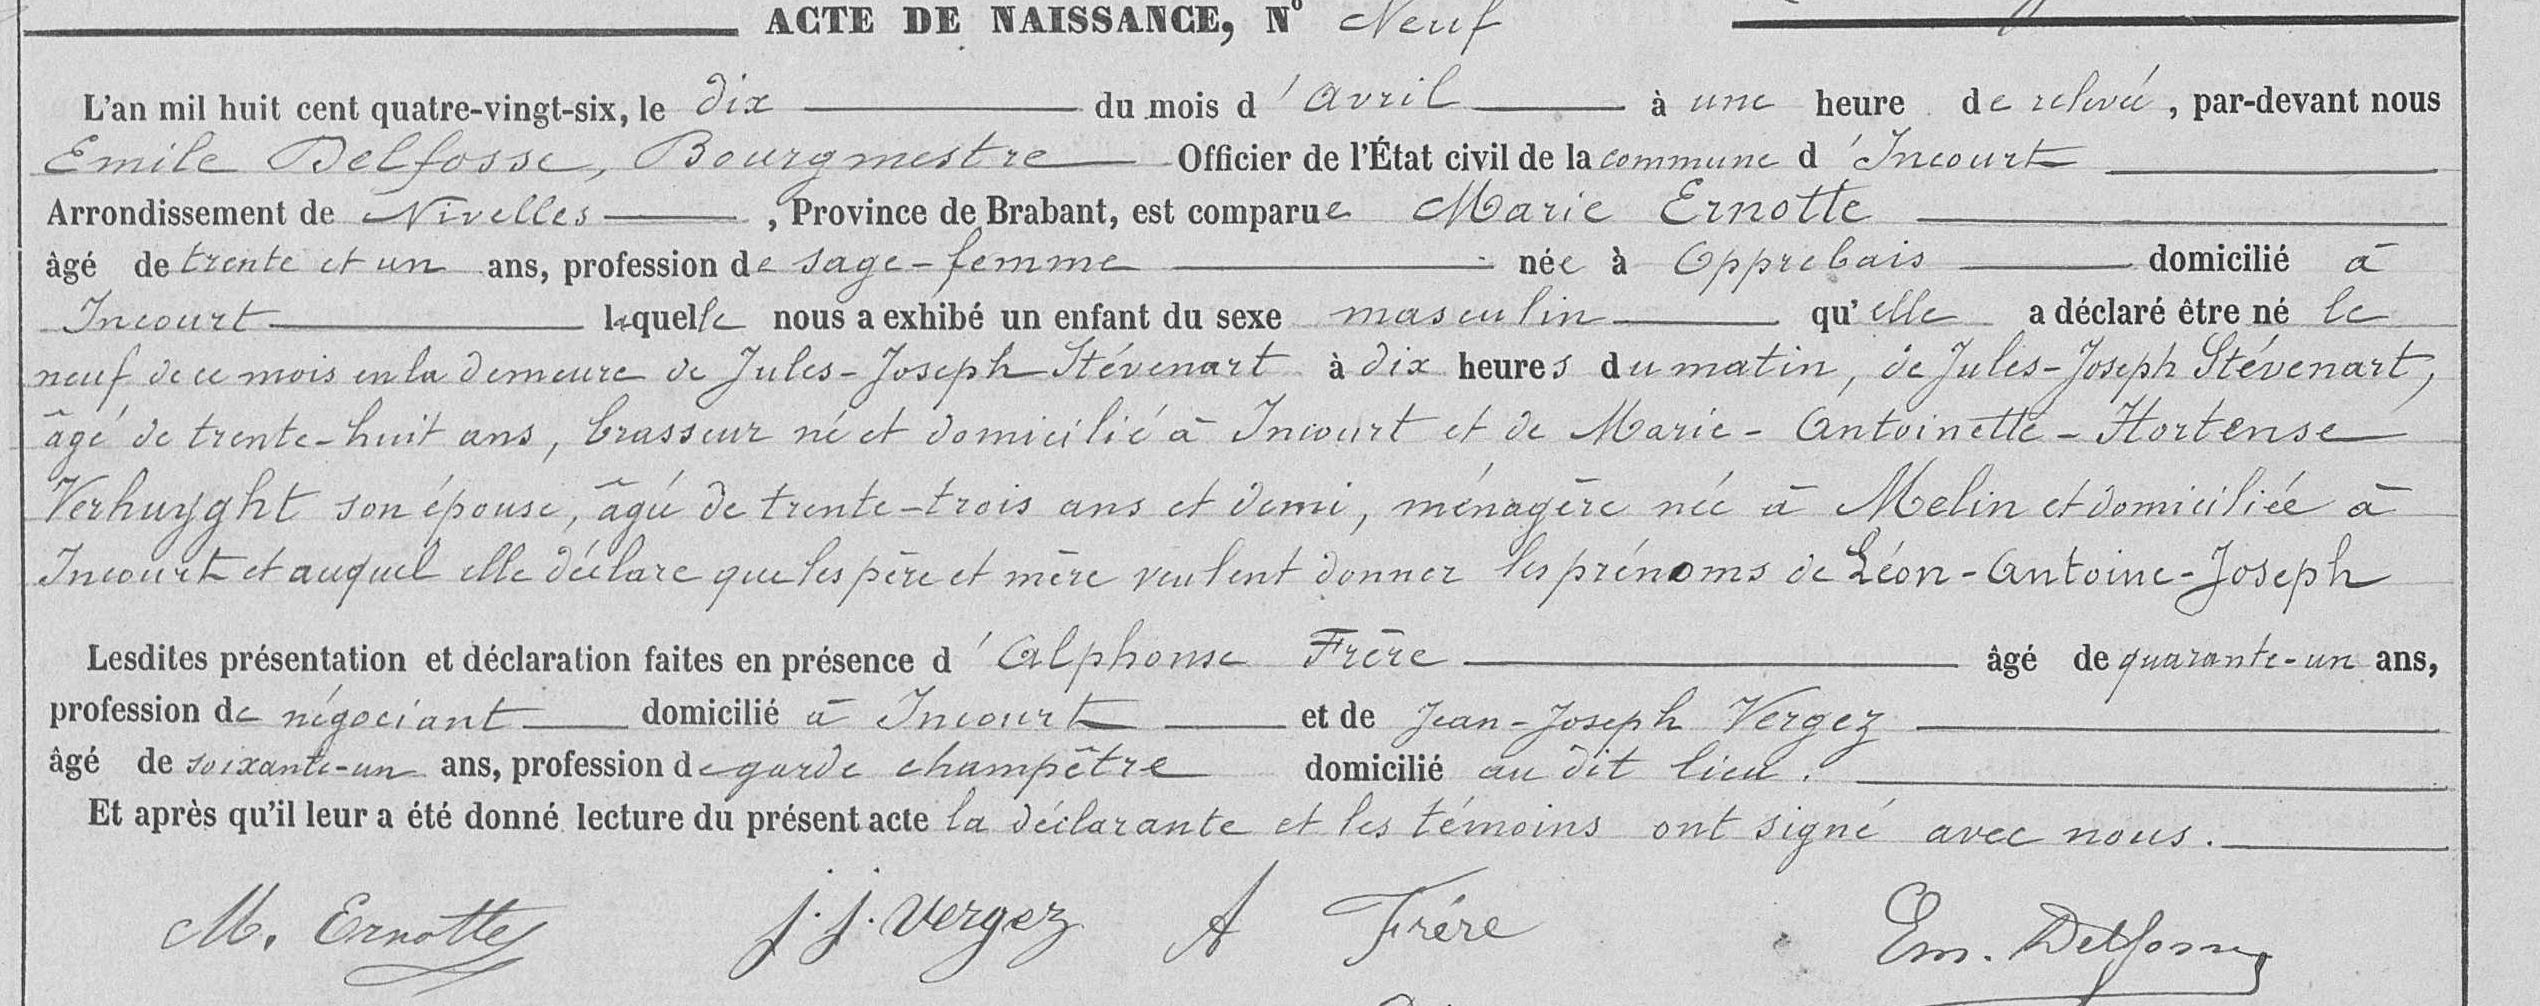 ACTE DE NAISSANCE, N° Neuf
L'an mil huit cent quatre-vingt-six, le dix du mois d'Avril à une heure de relevée, par-devant nous
Emile Delfosse, Bourgmestre Officier de l'État civil de la commune d'Incourt
Arrondissement de Nivelles, Province de Brabant, est comparue Marie Ernotte
âgé de trente et un ans, profession de sage-femme née à Opprebais domicilié à
Incourt laquelle nous a exhibé un enfant du sexe masculin qu'elle a déclaré être né le
neuf de ce mois en la demeure de Jules-Joseph Stévenart à dix heures du matin, de Jules-Joseph Stévenart,
âgé de trente-huit ans, brasseur né et domicilié à Incourt et de Marie-Antoinette-Hortense
Verhuyght son épouse, âgée de trente-trois ans et demi, ménagère née à Melin et domiciliée à
Incourt et auquel elle déclare que les père et mère veulent donner les prénoms de Léon-Antoine-Joseph
Lesdites présentation et déclaration faites en présence d'Alphonse Frère âgé de quarante-un ans,
profession de négociant domicilié à Incourt et de Jean-Joseph Vergez
âgé de soixante-un ans, profession de garde champêtre domicilié au dit lieu.
Et après qu'il leur a été donné lecture du présent acte la déclarante et les témoins ont signé avec nous.
M. Ernotte J. J. Vergez A Frére Em. Delfosse